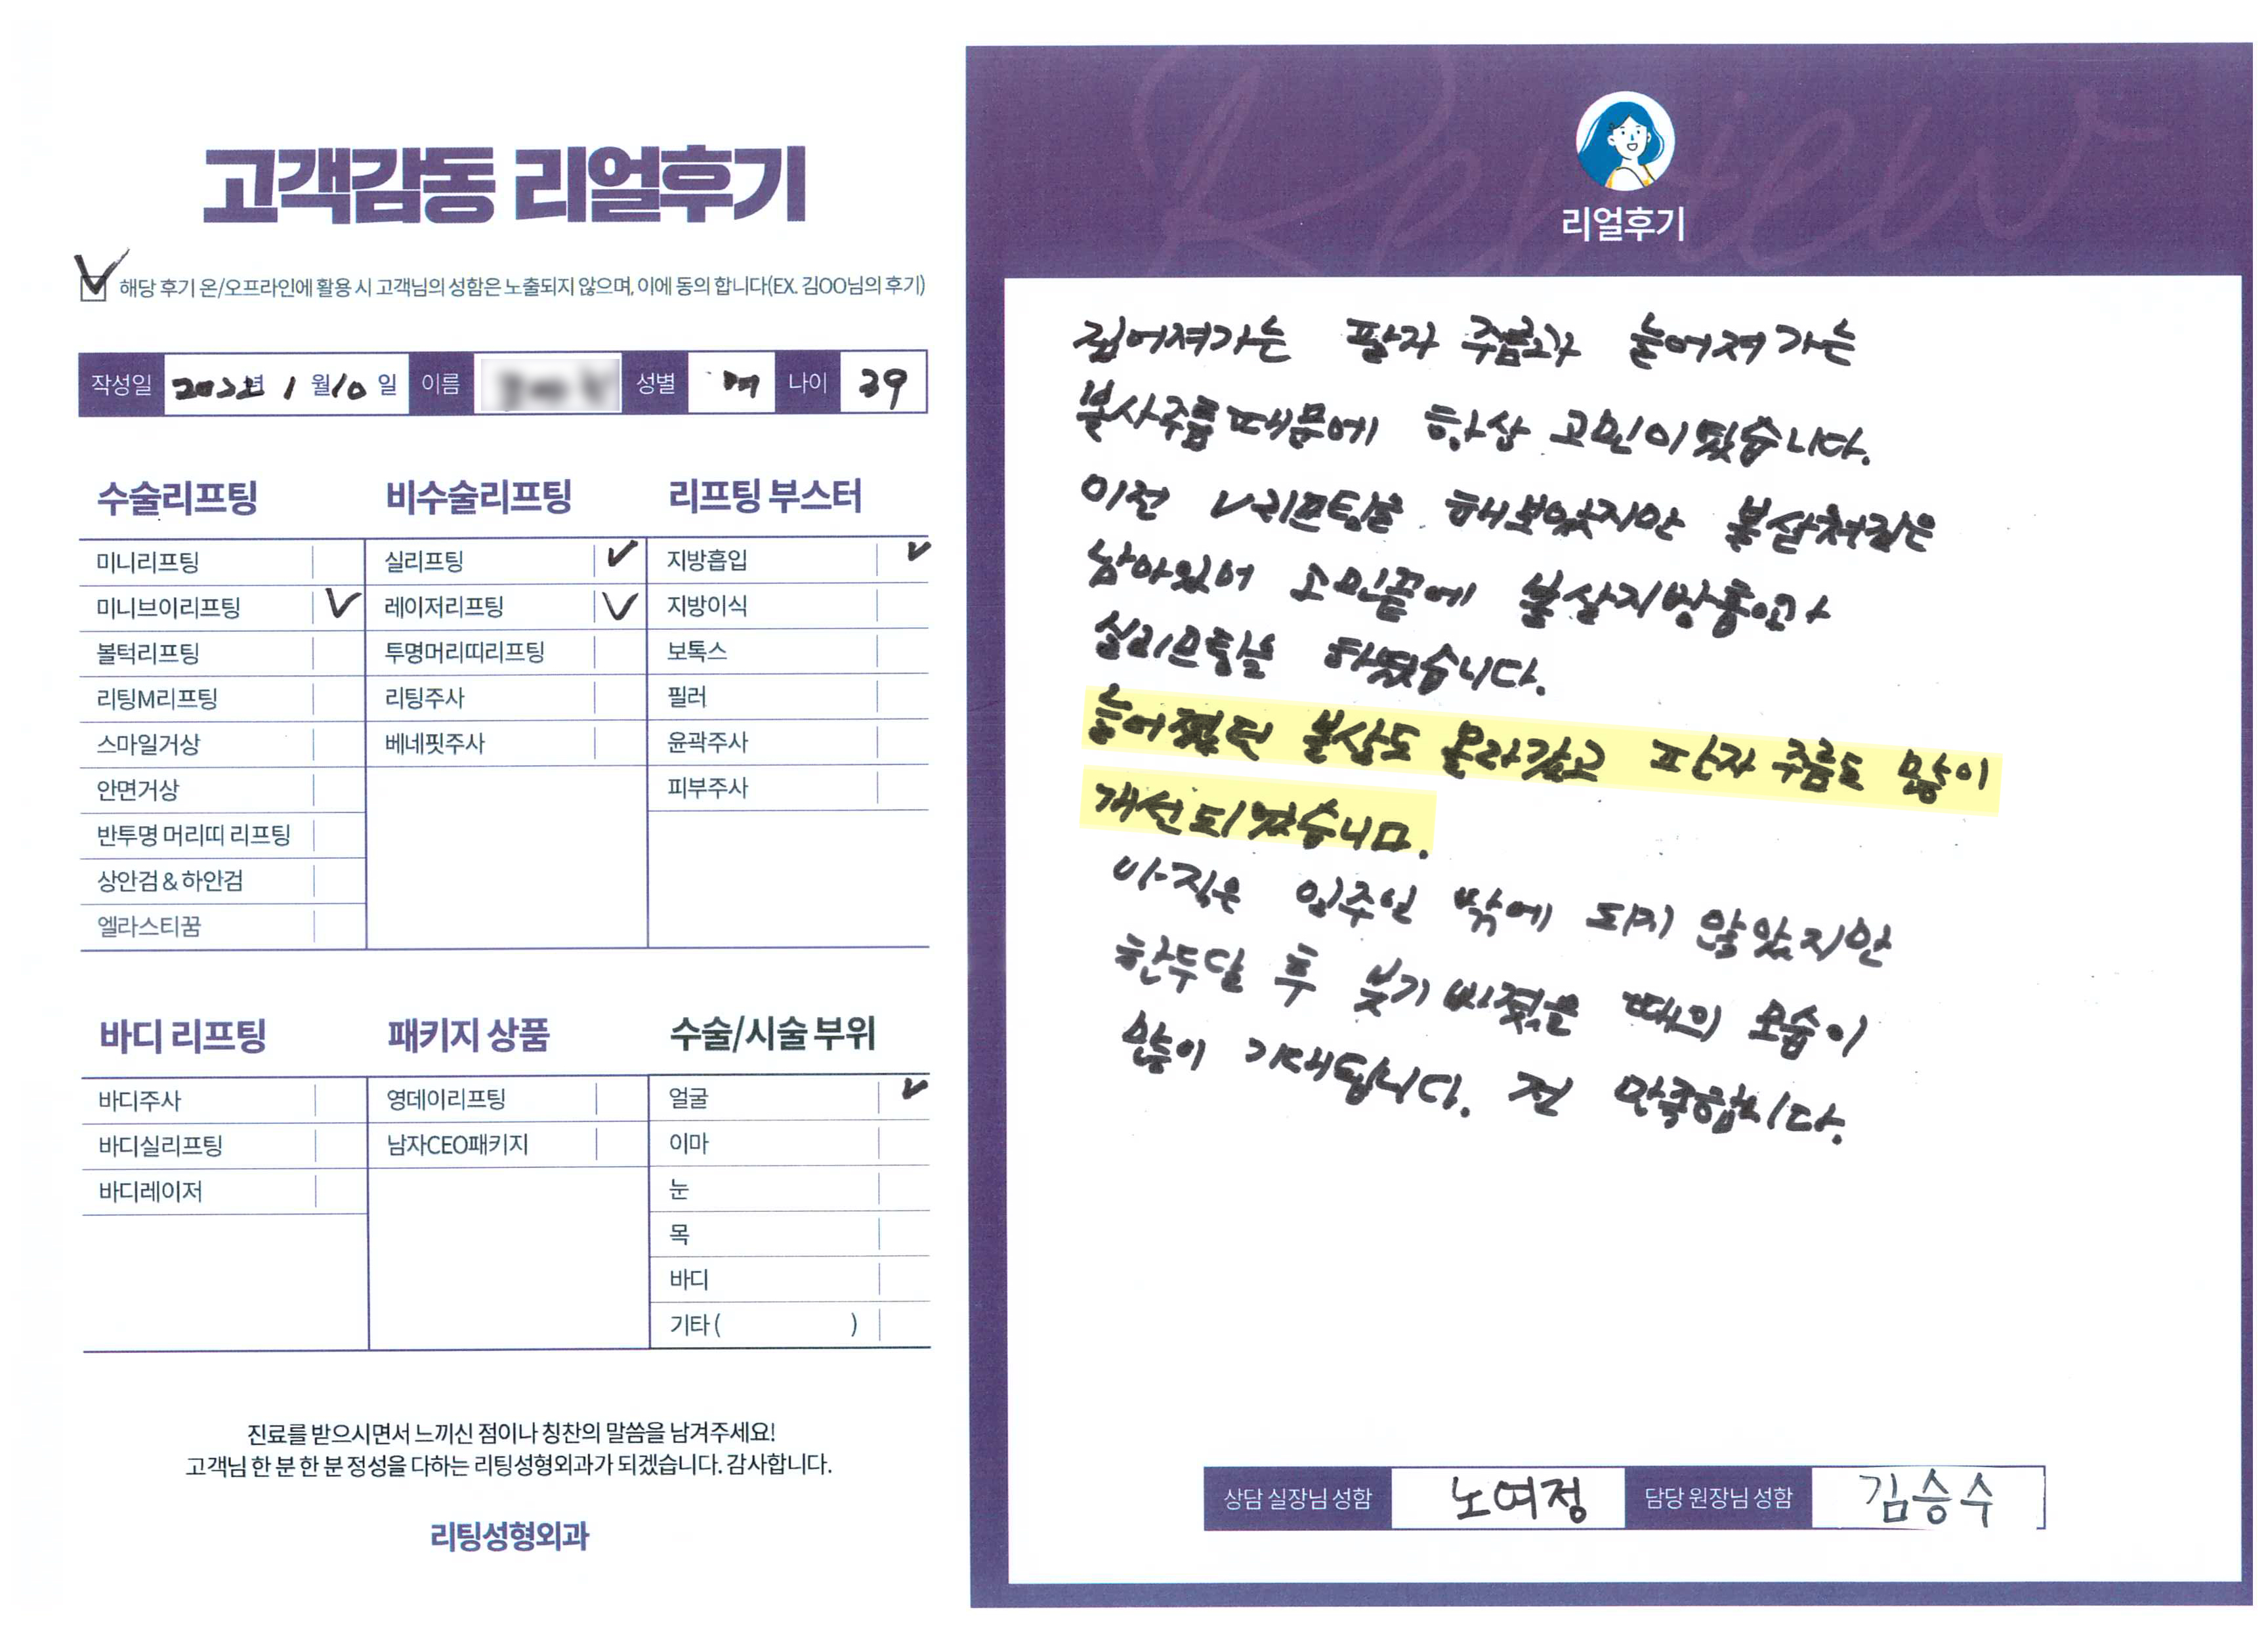 고객감동 리얼후기
해당 후기 온/오프라인에 활용 시 고객님의 성함은 노출되지 않으며, 이에 동의 합니다(EX. 김OO님의 후기)
작성일 2022년 1월 10일 이름 성별 여 나이 39
수술리프팅
미니리프팅
미니브이리프팅
볼턱리프팅
리팅M리프팅
스마일거상
안면거상
반투명 머리띠 리프팅
상안검 & 하안검
엘라스티꿈
비수술리프팅
실리프팅
레이저리프팅
투명머리띠리프팅
리팅주사
베네핏주사
리프팅 부스터
지방흡입
지방이식
보톡스
필러
윤곽주사
피부주사
바디 리프팅
바디주사
바디실리프팅
바디레이저
패키지 상품
영데이리프팅
남자CEO패키지
수술/시술 부위
얼굴
이마
눈
목
바디
기타 ( )
진료를 받으시면서 느끼신 점이나 칭찬의 말씀을 남겨주세요!
고객님 한 분 한 분 정성을 다하는 리팅성형외과가 되겠습니다. 감사합니다.
리팅성형외과
Review
리얼후기
깊어져가는 팔자 주름과 늘어져 가는
볼살주름때문에 항상 고민이 됐습니다.
이전 V리프팅을 해보았지만 볼살처짐은
남아있어 고민끝에 볼살지방흡입과
실리프팅을 하였습니다.
늘어졌던 볼살도 올라갔고 팔자 주름도 많이
개선되었습니다.
아직은 일주일 밖에 되지 않았지만
한두달 후 붓기 빠졌을 때의 모습이
많이 기대됩니다. 전 만족합니다.
상담 실장님 성함 노여정 담당 원장님 성함 김승수